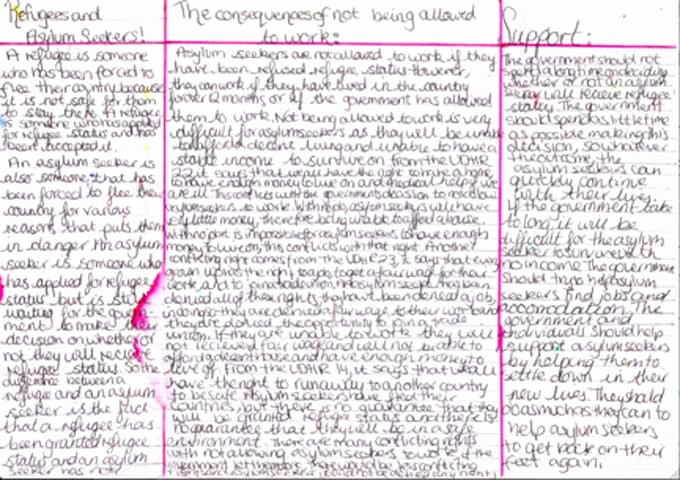 Refugees and
Asylum Seekers!
A refugee is someone
who has been forced to
flee their country because
it is not safe for them
to stay there. A refugee
is someone who has applied
for refugee status and has
been accepted it.
An asylum seeker is
also someone that has
been forced to flee their
country for various
reasons that puts them
in danger. An asylum
seeker is someone who
has applied for refugee
status but is still
waiting for the govern-
ment to make their
decision on whether or
not they will receive
refugee status. So the
difference between a
refugee and an asylum
seeker is the fact
that a refugee has
been granted refugee
status and an asylum
seeker has not.
The consequences of not being allowed
to work:
Asylum seekers are not allowed to work if they
have been refused refugee status. However,
they can work if they have lived in the country
for over 12 months or if the government has allowed
them to work. Not being allowed to work is very
difficult for asylum seekers as they will be unable
to afford decent living and unable to have a
stable income to survive on. From the UDHR
22, it says that we all have the right to have a home,
to have enough money to live on and medical help if we
are ill. This conflicts with the government's decision to not allow
asylum seekers to work. Without jobs, asylum seekers will have
very little money, therefore being unable to afford a house.
with no job it is impossible for asylum seekers to have enough
money to live on, this conflicts with that right. Another
conflicting right comes from the UDHR 23, it says that every
grown up has the right to a job, to get a fair wage for their
work and to join a trade union.
denied all of these rights, they have been denied a job,
they are denied a fair wage
they are denied the opportunity to join a trade
union. If they are unable to work they will
not receive a fair wage and will not be able to
afford a decent house and have enough money to
live of. From the UDHR 14, it says that we all
have the right to run away to another country
to be safe. Asylum seekers have fled their
countries but there is no guarantee that they
will be granted refugee status and there is
no guarantee that they will be in a safe
environment. There are many conflicting rights
with not allowing asylum seekers to work. If the
government let them
Support:
The government should not
spend a long time on deciding
whether or not an asylum
seeker will receive refugee
status. The government
should spend as little time
as possible making this
decision, so whatever
the outcome, the
asylum seekers can
quickly continue
with their lives.
If the government take
to long, it will be
difficult for the asylum
seeker to survive with
no income. The government
should try to help asylum
seekers find jobs and
accomodation. The
government and
individuals should help
support asylum seekers
by helping them to
settle down in their
new lives. They shald
do as much as they can to
help asylum seekers
to get back on their
feet again.